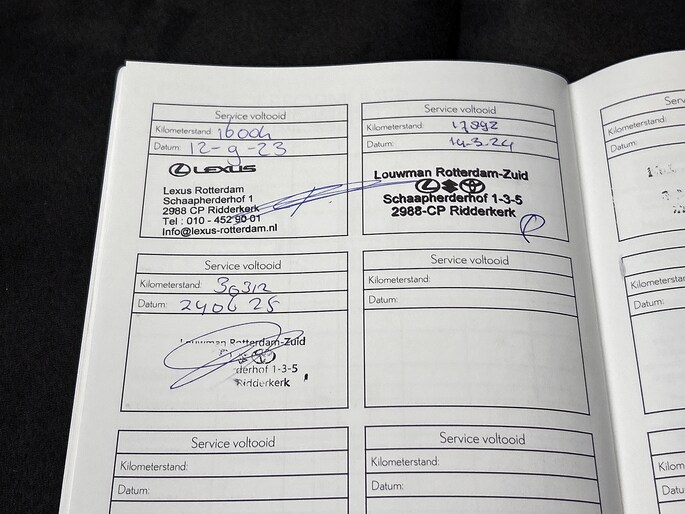 Service voltooid
Kilometerstand: 16004
Datum: 12-9-23
LEXUS
Lexus Rotterdam
Schaapherderhof 1
2988 CP Ridderkerk
Tel : 010 - 452 90 01
Info@lexus-rotterdam.nl
Service voltooid
Kilometerstand: 17892
Datum: 14-3-24
Louwman Rotterdam-Zuid
Schaapherderhof 1-3-5
2988-CP Ridderkerk
Service voltooid
Kilometerstand: 36312
Datum: 240625
Louwman Rotterdam-Zuid
derhof 1-3-5
Ridderkerk
Service voltooid
Kilometerstand:
Datum:
Service voltooid
Kilometerstand:
Datum:
Service voltooid
Kilometerstand:
Datum:
Serv
Kilometerst
Datum:
Se
Kilometerstan
Datum:
Kilom
Datu